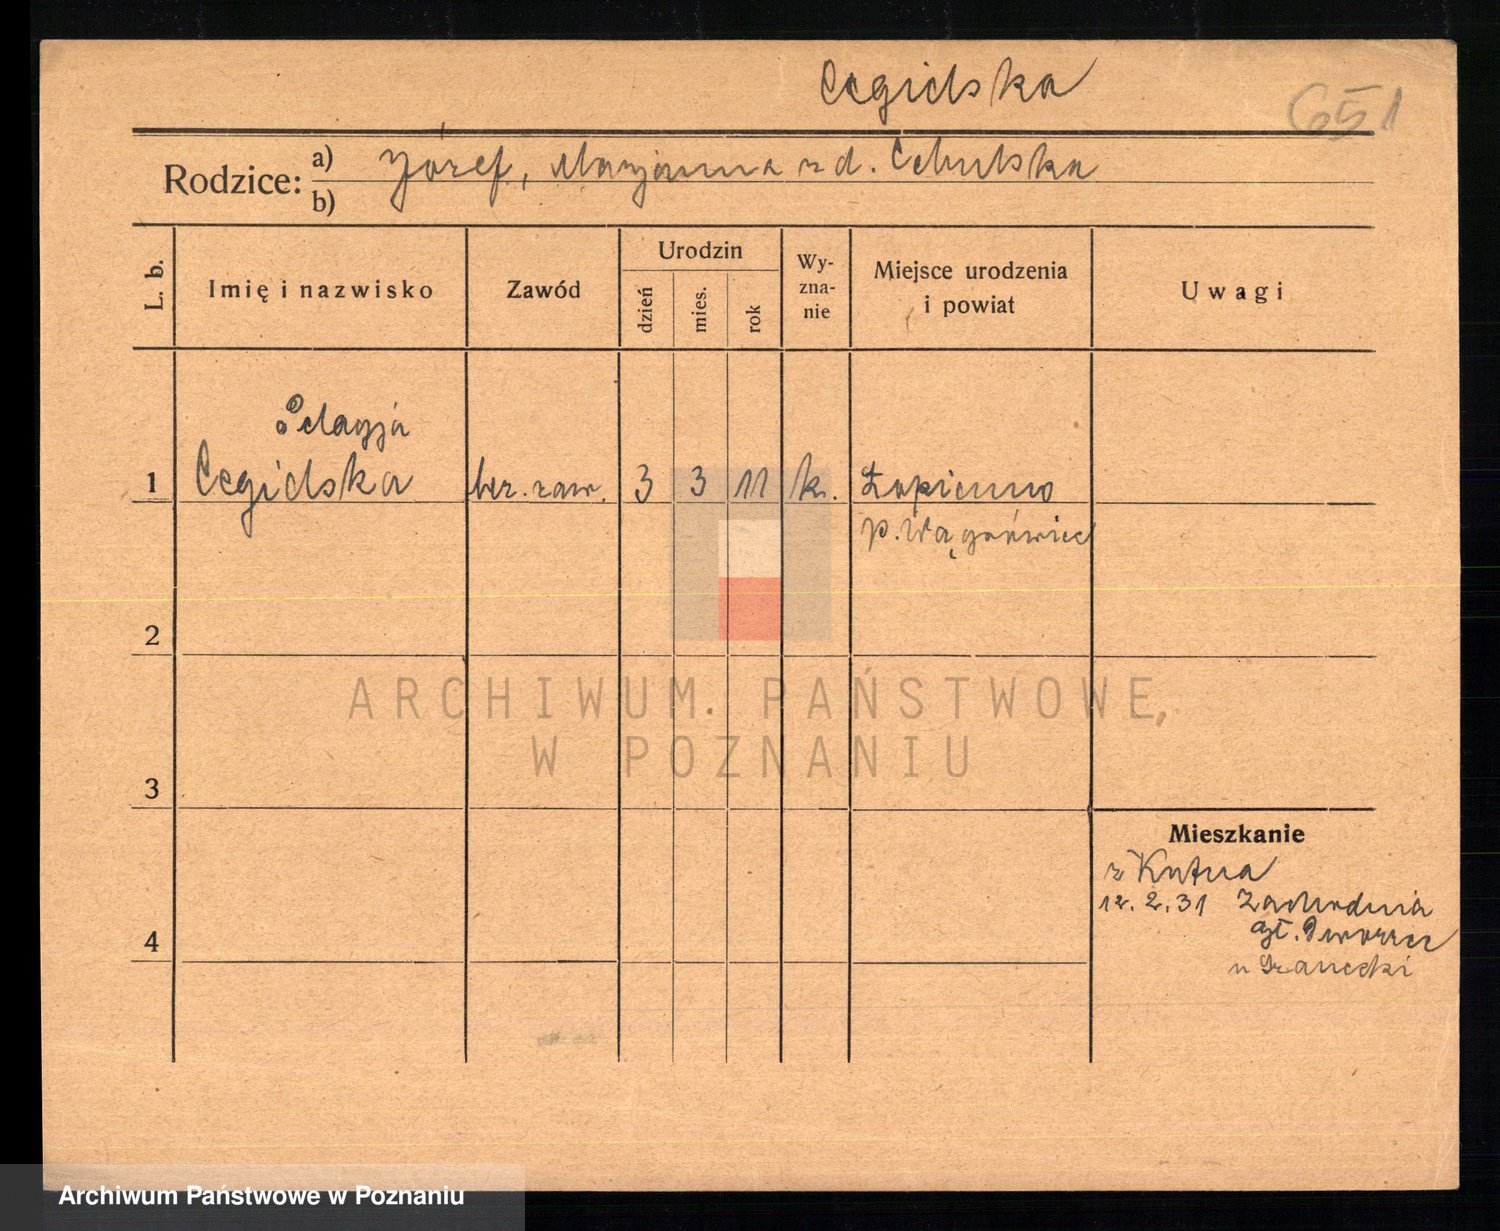 Cegielska
651
Rodzice: a) Józef, Marjanna z d. Cebulska
b)
L. b.
Imię i nazwisko
Zawód
Urodzin
dzień
mies.
rok
Wy-
zna-
nie
Miejsce urodzenia
i powiat
Uwagi
Pelagja
1 Cegielska bez. zaw. 3 3 11 k. Łopienno
p. Wągrówiec
2
3
4
Mieszkanie
z Kutna
12. 2. 31 Zachodnia
gł. Dworzec
ARCHIWUM PAŃSTWOWE
W POZNANIU
Archiwum Państwowe w Poznaniu